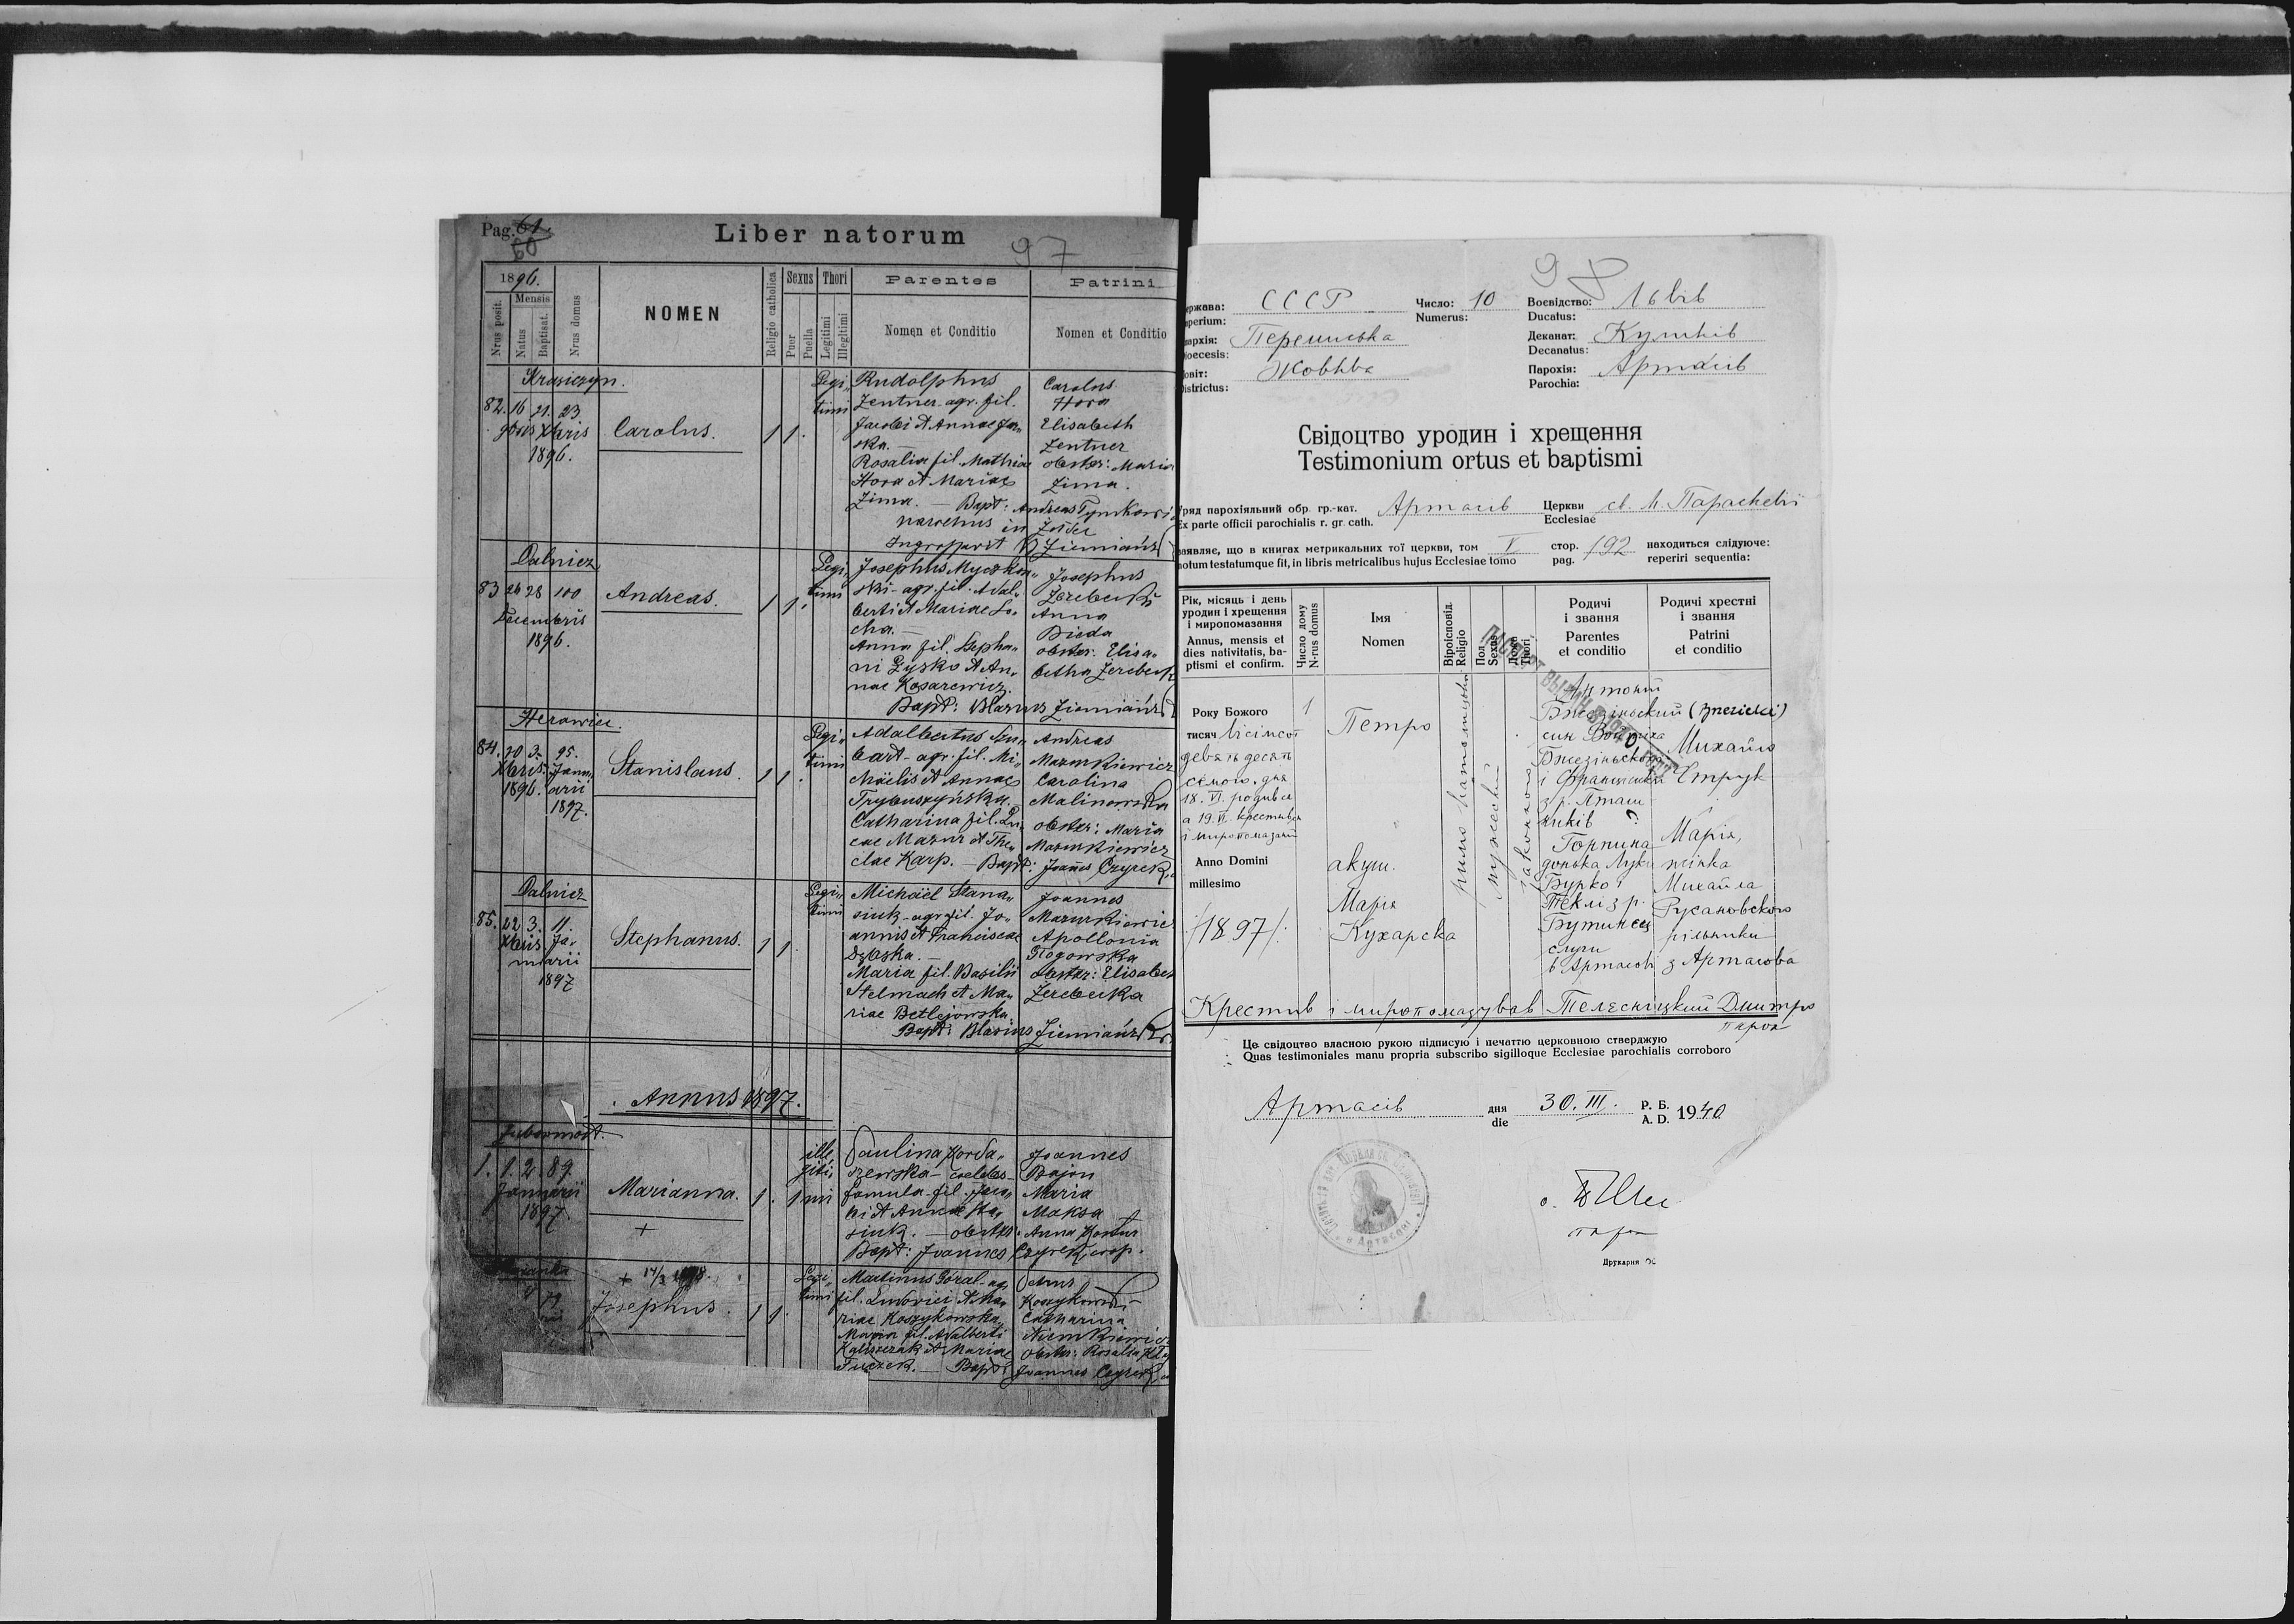 Pag. 61.
60
Liber natorum
97
1896.
Nrus posit.
Mensis
Natus
Baptisat.
Nrus domus
NOMEN
Religio catholica
Sexus
Puer
Puella
Thori
Legitimi
Illegitimi
Parentes
Nomen et Conditio
Patrini
Nomen et Conditio
Krasiczyn.
82. 16 21. 23
9bris Xbris
1896.
Carolus.
1 1.
Legi-
timi
Rudolphus
Zentner agr. fil.
Jacobi et Annae Ja-
ska. —
Rosalia fil. Mathiae
Hora et Mariae
Zima. — Bapt: Andreas
parochus in
Carolus
Hora
Elisabeth
Zentner
obster: Maria
Zima.
Ingrossavit
Dalnicz
83 26 28 100
Decembris
1896.
Andreas.
1 1.
Legi-
timi
Josephus Myczkow-
ski - agr. fil. Adal-
berti et Mariae So-
cha. —
Anna fil. Stepha-
ni Łyszko et An-
nae Kosarewicz.
Bapt: Blasius Ziemiański
Josephus
Żerebecki
Anna
Bieda
obster: Elisa-
betha Żerebeck
84. 20 3. 95.
Xbris. Janu-
1896. arii
1897.
Stanislaus.
1 1.
Legi-
timi
Adalbertus Szu-
bart - agr. fil. Mi-
chaelis et Annae
Trybuszyńska. —
Catharina fil. Lu-
cae Mazur et The-
clae Karp. — Bapt: Joannes Czyrek,
Andreas
Mazurkiewicz
Carolina
Malinowska
obster: Maria
Mazurkiewicz
Dalnicz
85. 22 3. 11.
Xbris Ja-
nuarii
1897
Stephanus.
1 1.
Legi-
timi
Michaël Stana-
siuk - agr. fil. Jo-
annis et Franciscae
Dębska. —
Maria fil. Basilii
Stelmach et Ma-
riae Betlejowska.
Bapt: Blasius Ziemiański
Joannes
Mazurkiewicz
Apollonia
Głogowska
obster: Elisabet
Żerebecka
Annus 1897.
1. 1. 2. 89.
Januarii
1897.
Marianna.
+
1. 1
ille-
giti-
mi
Paulina Korda-
szewska — caelebs
famula fil. Jaco-
bi et Annae Sta-
siuk. — obster: Anna
Bapt: Joannes Czyrek, coop.
Joannes
Bajon
Maria
Maksa
Josephus.
1 1.
Legi-
timi
Martinus Góral - agr.
fil. Ludovici et Ma-
riae Koszykowska
Maria fil. Adalberti
Kaliszczak et Mariae
Tuczek. — Bapt: Joannes Czyrek,
Petrus
Koszykowski
Catharina
Niemkiewicz
obster: Rosalia
98
ержава:
mperium:
СССР
Число:
Numerus:
10
Воєвідство:
Ducatus:
Львів
пархія:
ioecesis:
Перемиська
Деканат:
Decanatus:
Куликів
овіт:
istrictus:
Жовква
Парохія:
Parochia:
Артасів
Свідоцтво уродин і хрещення
Testimonium ortus et baptismi
Уряд парохіяльний обр. гр.-кат.
Ex parte officii parochialis r. gr. cath.
Артасів
Церкви
Ecclesiae
св. М. Параскевії
заявляє, що в книгах метрикальних тої церкви, том V стор. 192 находиться слідуюче:
notum testatumque fit, in libris metricalibus hujus Ecclesiae tomo pag. reperiri sequentia:
Рік, місяць і день
уродин і хрещення
і миропомазання
Annus, mensis et
dies nativitatis, ba-
ptismi et confirm.
Число дому
N-rus domus
Імя
Nomen
Віроісповід.
Religio
Пол
Sexus
Ложе
Thori
Родичі
і звання
Parentes
et conditio
Родичі хрестні
і звання
Patrini
et conditio
Року Божого
тисяч вісімсот
девятьдесять
семого. дня
18. VI. родився
а 19. VI. крестився
і миропомазаний
Anno Domini
millesimo
/1897/.
1
Петро
акуш.
Марія
Кухарска
римо католицьке
мужеский
законного
Антоній
Бжезіньский (Brzeziński)
син Войтіха
Бжезіньского
і Францішки
з р. Пташ-
ників
Горпина
донька Луки
Бурко і
Теклі з р.
Бутинец
слуги
в Артасові
Михайло
Струк
Марія,
жінка
Михайла
Русановского
рільники
з Артасова
Крестив і миропомазував Телесницкий Дмитро
парох
Це свідоцтво власною рукою підписую і печаттю церковною стверджую
Quas testimoniales manu propria subscribo sigilloque Ecclesiae parochialis corroboro
Артасів
дня
die
30. III.
Р. Б.
A. D.
1940
Друкарня